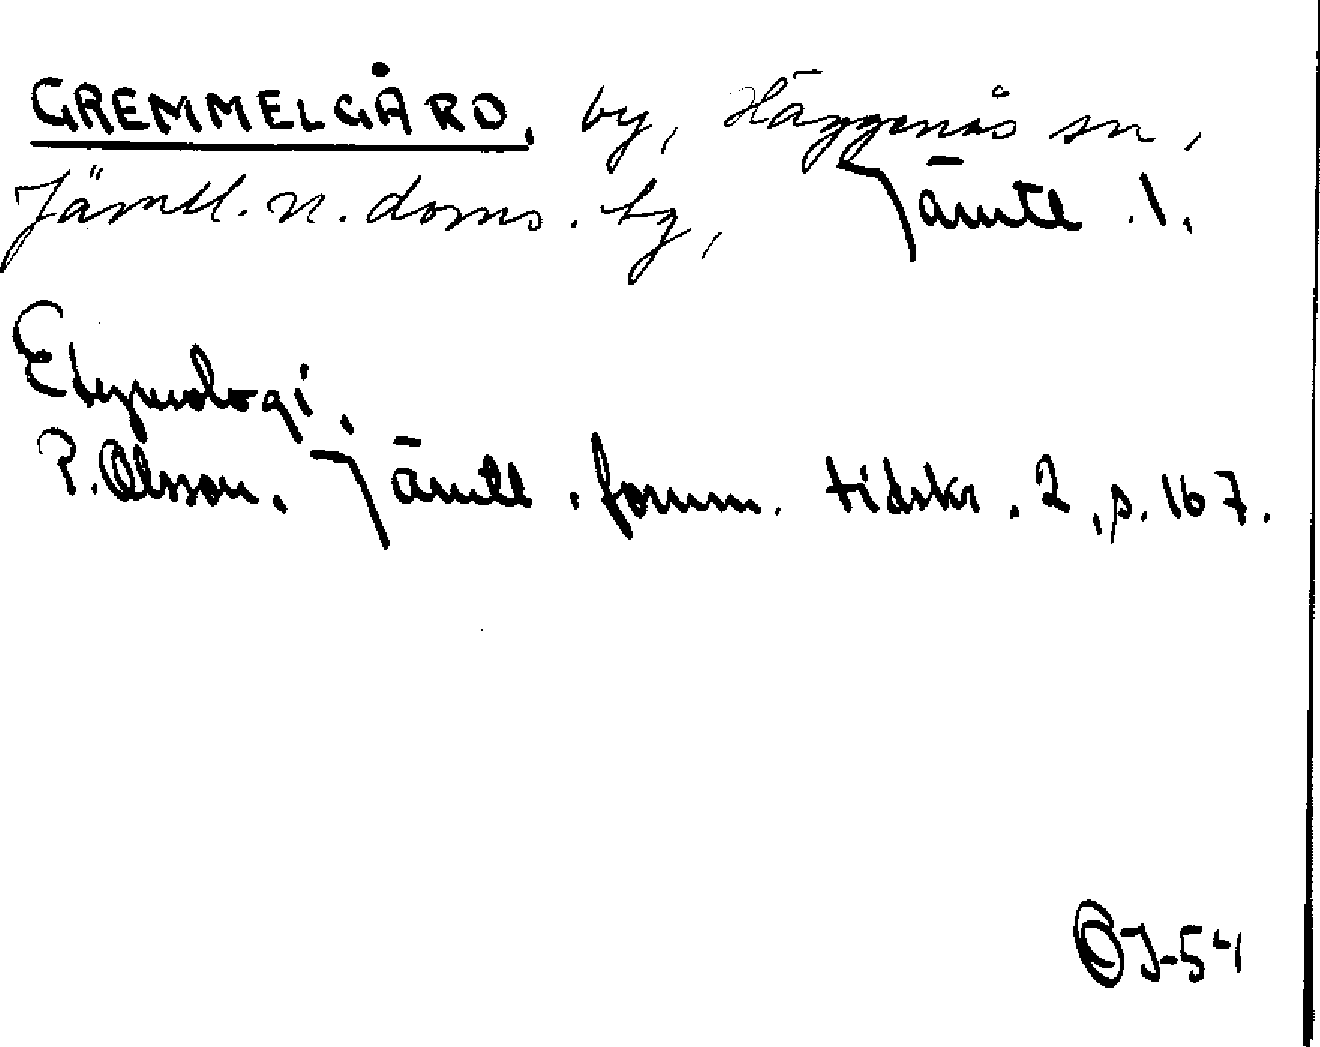 GREMMELGÅRD, by, Häggenås sn,
Jämtl. n. doms. tg, Jämtl. l.
Etymologi.
P. Olsson. Jämtl. fornm. tidskr. 2, s. 167.
J-54